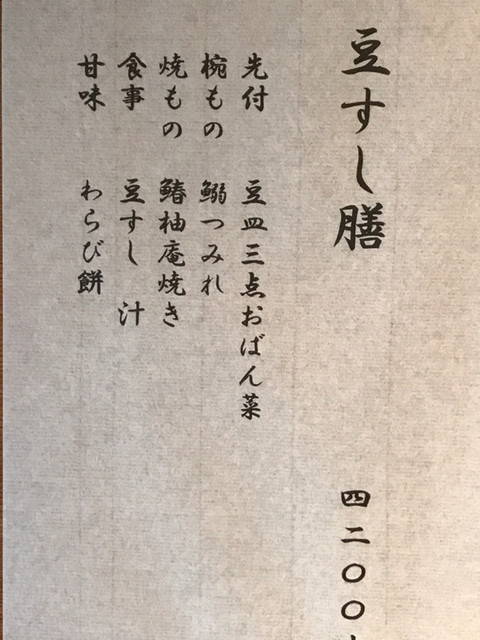 豆すし膳 四二〇〇
先付 豆皿三点おばん菜
椀もの 鰯つみれ
焼もの 鰆柚庵焼き
食事 豆すし 汁
甘味 わらび餅